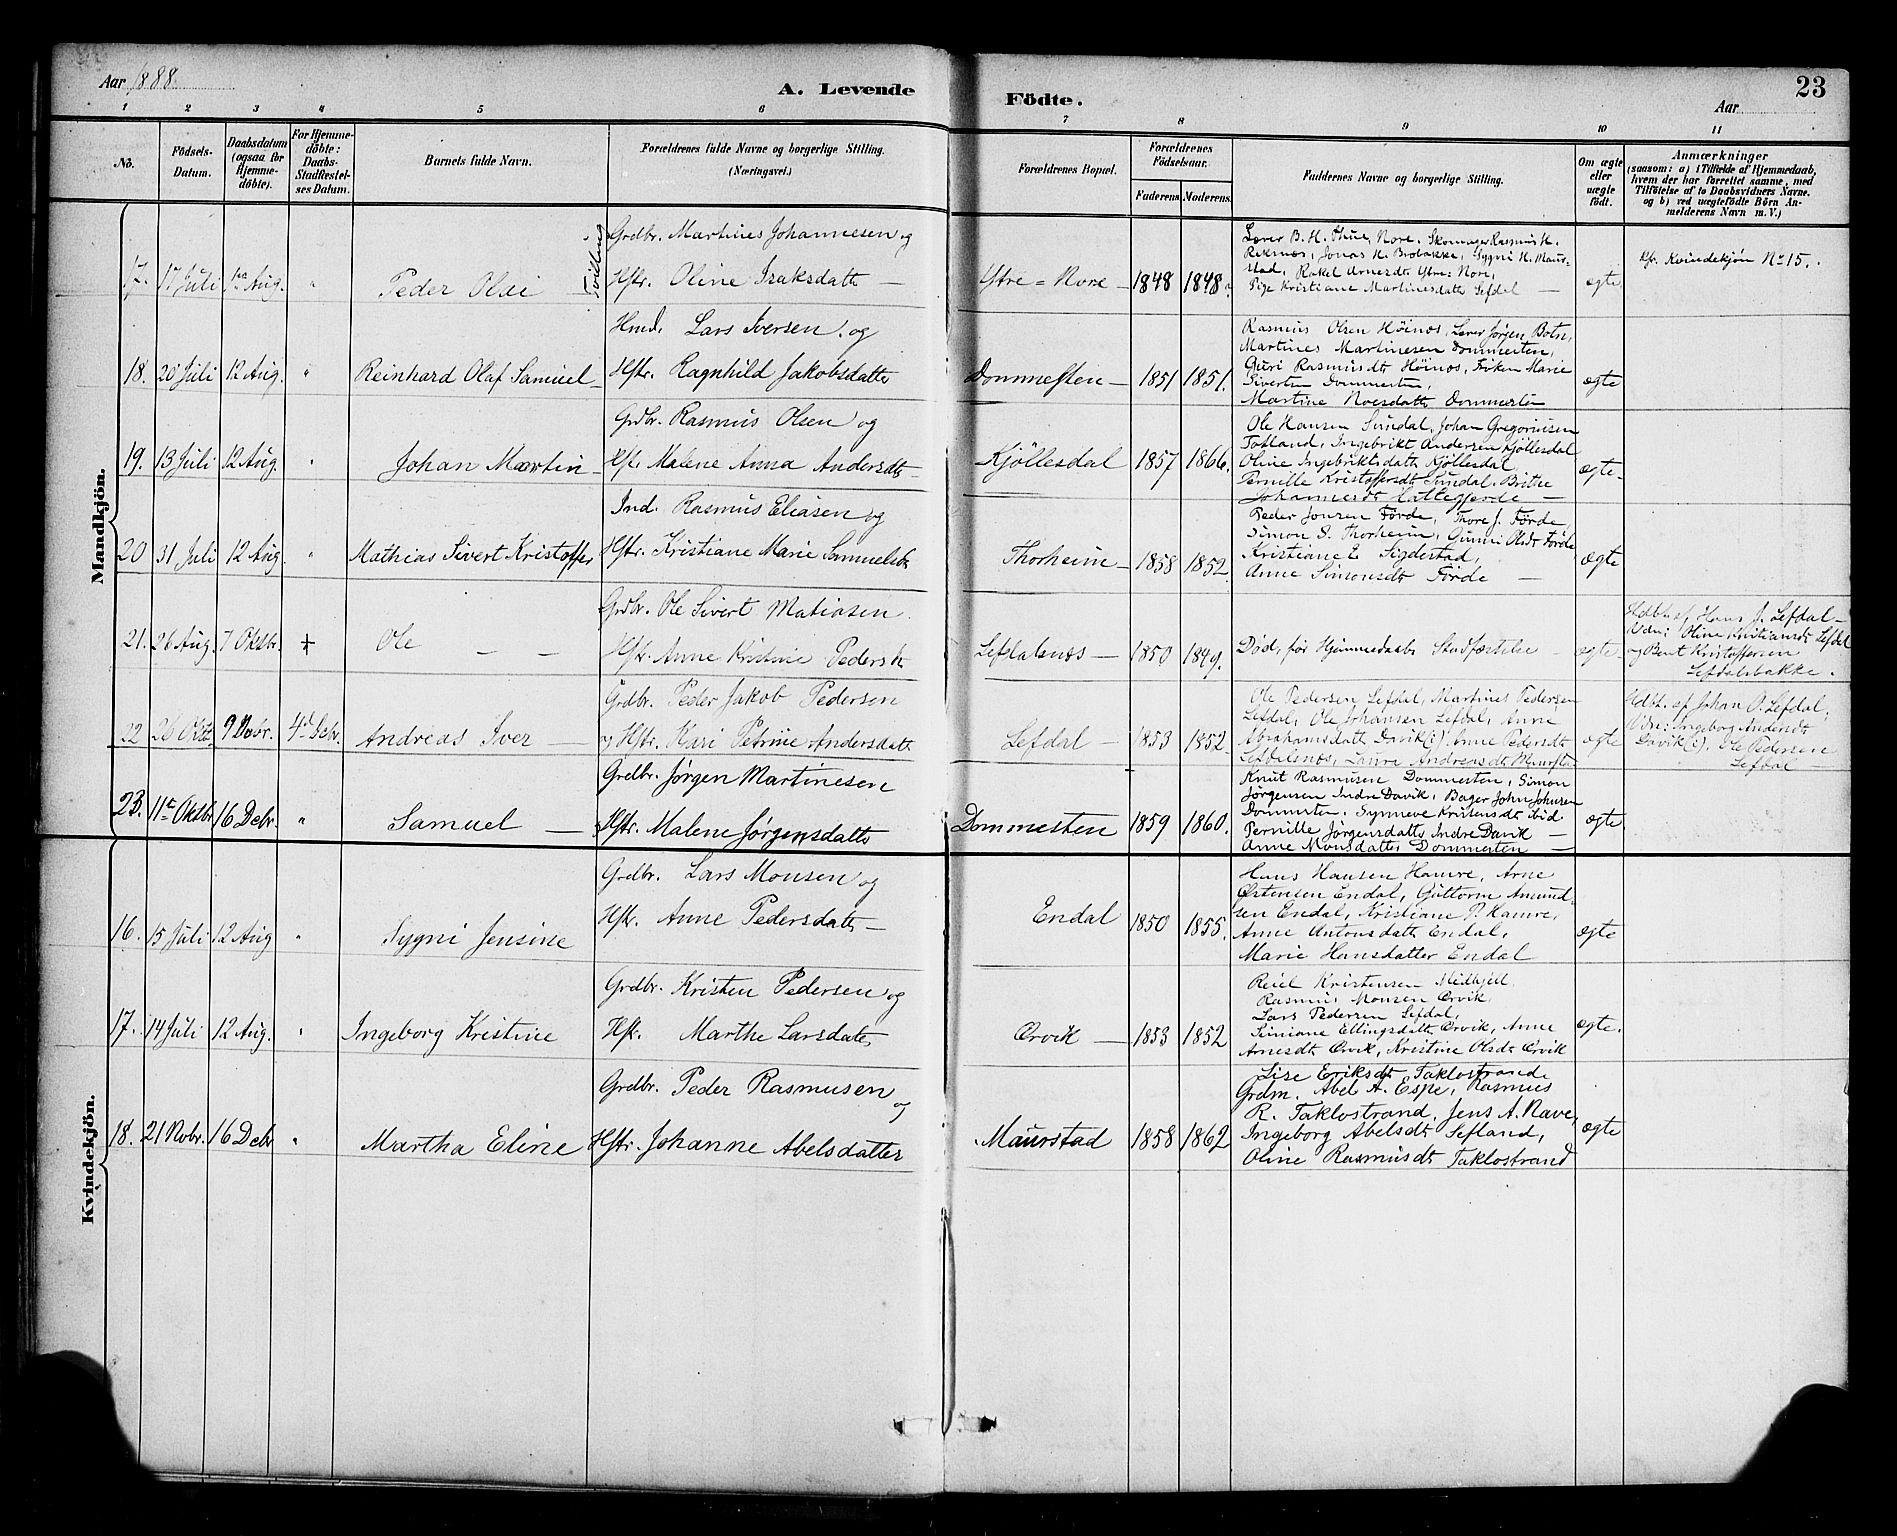 Aar 1888. A. Levende Födte. Aar 23
1 2 3 4 5 6 7 8 9 10 11
No.
Födsels-Datum.
Daabsdatum (ogsaa for Hjemmedöbte).
For Hjemmedöbte: Daabs-Stadfæstelses Datum.
Barnets fulde Navn.
Forældrenes fulde Navne og borgerlige Stilling. (Næringsvei.)
Forældrenes Bopæl.
Forældrenes Födselsaar.
Faderens Moderens
Faddernes Navne og borgerlige Stilling.
Om ægte eller uægte födt.
Anmærkninger
(saasom: a) i Tilfælde af Hjemmedaab,
hvem der har forrettet samme, med
Tilföielse af to Daabsvidners Navne.
og b) ved uægtefödte Börn An-
melderens Navn m. V.)
Mandkjön.
17. 17 Juli Aug. " Peder Olai Tvilling
Grdbr. Martines Johannesen og
Hstr. Oline Isaksdattr
Ytre=Nore 1848 1848
Lærer B. H. Thue, Nore. Skomager Rasmus H.
Reknes, Jonas H. Brobakke, Sygni H. Maur-
stad, Rakel Arnesdt Ytre=Nore,
Pige Kristiane Martinesdattr Lefdal
ægte
Kfr. Kvindekjön No 15.
18. 20 Juli 12 Aug. " Reinhard Olaf Samuel
Hmd. Lars Iversen og
Hstr. Ragnhild Jakobsdattr
Dommesten 1851 1851.
Rasmus Olsen Höinæs, Lærer Jørgen Botn,
Martines Martinesen Dommesten,
Guri Rasmusdt Höinæs, Marie
Sivertsen Dommesten,
Martine Dommesten
ægte
19. 13 Juli 12 Aug. " Johan Martin
Grdbr. Rasmus Olsen og
Hstr. Malene Anna Andersdtr
Kjöllesdal 1857 1866.
Ole Hansen Sundal, Johan Gregoriusen
Totland, Ingebrikt Andersen Kjöllesdal
Oline Ingebriktsdattr Kjöllesdal
Pernille Kristoffersdt Sundal. Brithe
Johannesdt
ægte
20 31 Juli 12 Aug. " Mathias Sivert Kristoffer
Ind. Rasmus Eliasen og
Hstr. Kristiane Marie Samuelsdtr
Thorheim 1858 1852.
Peder Jonsen Förde, Thore J. Förde,
Simon S. Thorheim, Gunni Olsdt Förde
Kristiane E. Sigdestad,
Anne Simonsdt Förde
ægte
21. 26 Aug. 7 Oktbr. + Ole
Grdbr. Ole Sivert Matiasen
Hstr. Anne Kristine Pedersdtr
Lefdalsnæs 1850 1849.
Död, för Hjemmedaabs Stadfæstelse
ægte
Hdbt. af Hans J. Lefdal
Vidn: Oline Kristiansdt Lefdal
og Bent Kristoffersen
Lefdalsbakke.
22 26 Oktbr 9 Novbr. 4d Debr. Andreas Iver
Grdbr. Peder Jakob Pedersen
og Hstr. Kari Petrine Andersdattr
Lefdal 1853 1852
Ole Pedersen Lefdal, Martines Pedersen
Lefdal, Ole Johansen Lefdal, Anne
Abrahamsdattr Davik(i), Anne Pedersdt
Lefdalsnæs, Laura Andreasdt Maurstad
ægte
Hdbt. af Johan O. Lefdal,
Vidn: Ingeborg Andersdt
Davik(i), Ole Pedersen
Lefdal
23. 11te Oktbr 16 Debr. " Samuel
Grdbr. Jørgen Martinesen
Hstr. Malene Jørgensdattr
Dommesten 1859 1860.
Knut Rasmusen Dommesten, Simon
Jørgensen Indre Davik, Bager John Johnsen
Dommesten, Synneve Kristensdt ibid
Pernille Jørgensdattr Indre Davik
Anne Monsdatter Dommesten
ægte
Kvindekjön.
16. 15 Juli 12 Aug " Sygni Jensine
Grdbr. Lars Monsen og
Hstr. Anne Pedersdattr
Endal 1850 1855.
Hans Hansen Hamre, Arne
Østensen Endal, Guttorm Amund-
sen Endal, Kristiane P. Hamre,
Anne Antonsdattr Endal,
Marie Hansdatter Endal
ægte
17. 14 Juli 12 Aug. " Ingeborg Kristine
Grdbr. Kristen Pedersen og
Hstr. Marthe Larsdatr
Ørvik 1853 1852
Reiel Kristensen Midhjell
Rasmus Monsen Ørvik,
Lars Pedersen Lefdal,
Siniane Ellingsdattr Ørvik, Anne
Arnesdt Ørvik, Kristine Olsdt Ørvik
ægte.
18. 21 Novbr. 16 Debr " Martha Eline
Grdbr. Peder Rasmusen og
Hstr. Johanne Abelsdatter
Maurstad 1858 1862
Lise Eriksdt Taklostrand
Grdm. Abel A. Espe, Rasmus
R. Taklostrand, Jens A. Nave,
Ingeborg Abelsdt Lefland,
Oline Rasmusdt Taklostrand
ægte